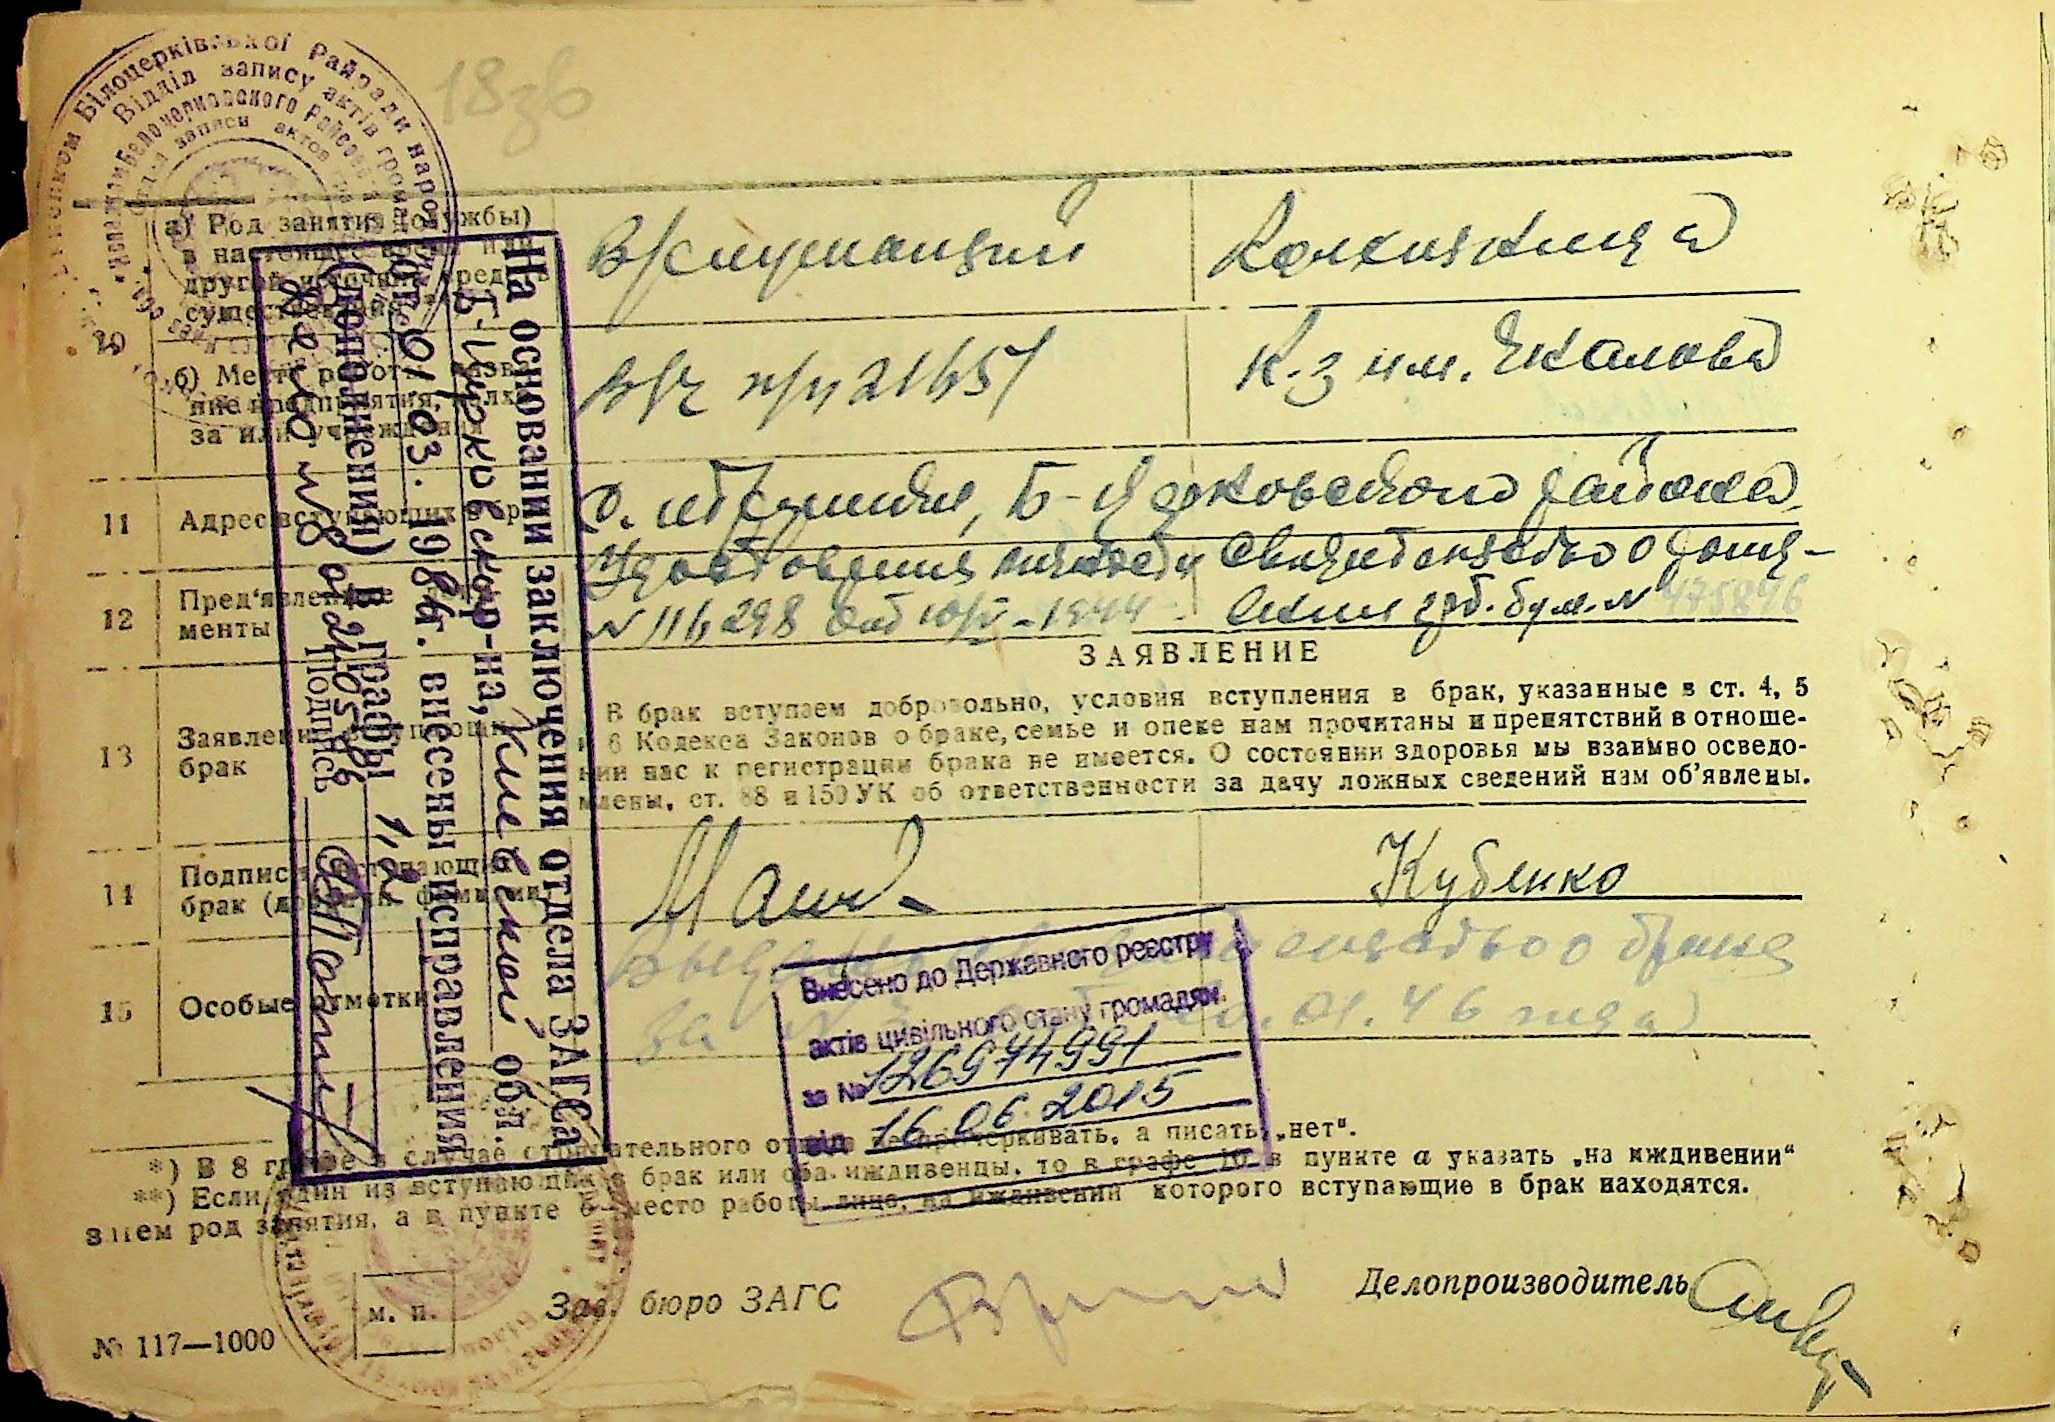 18зб
Білоцерківської Райради народ
Відділ запису актів грома
Белоцерковского Райсовета
записи актов
10
а) Род занятия (службы)
в настоящее время или
другой источник средств
существования
В/служащий
Колхозница
б) Место работы, назва-
ние предприятия, колхо-
за или учреждения
К-з им. Чкалова
11
Адрес вступающих в бр
Б-Церковского района
12
Пред'явленные
менты
Удостоверение личности
№ 116298 от 10/V-1944
Свидетельство о рож-
дении №
475846
ЗАЯВЛЕНИЕ
13
Заявление вступающих
брак
В брак вступаем добровольно, условия вступления в брак, указанные в ст. 4, 5
и 6 Кодекса Законов о браке, семье и опеке нам прочитаны и препятствий в отноше-
нии нас к регистрации брака не имеется. О состоянии здоровья мы взаимно осведо-
млены, ст. 88 и 150 УК об ответственности за дачу ложных сведений нам об'явлены.
14
Подписи вступающих
брак
Кубенко
15
Особые отметки
о браке
за № 01.46 года
На основании заключения отдела ЗАГСа
Б-Церковского р-на, Киевской обл.
от 01.03. 1986г. внесены исправления
(дополнения) в графы 1,2
Дело №8 от 05.86
Подпись
Внесено до Державного реєстру
актів цивільного стану громадян
за № 126974991
від 16.06.2015
*) В 8 графе в случае отрицательного ответа не прочеркивать, а писать „нет“.
**) Если один из вступающих в брак или оба иждивенцы, то в графе 10 в пункте а указать „на иждивении“
в чем род занятия, а в пункте б место работы лица, на иждивении которого вступающие в брак находятся.
м. п.
Зав. бюро ЗАГС
Делопроизводитель
№ 117—1000